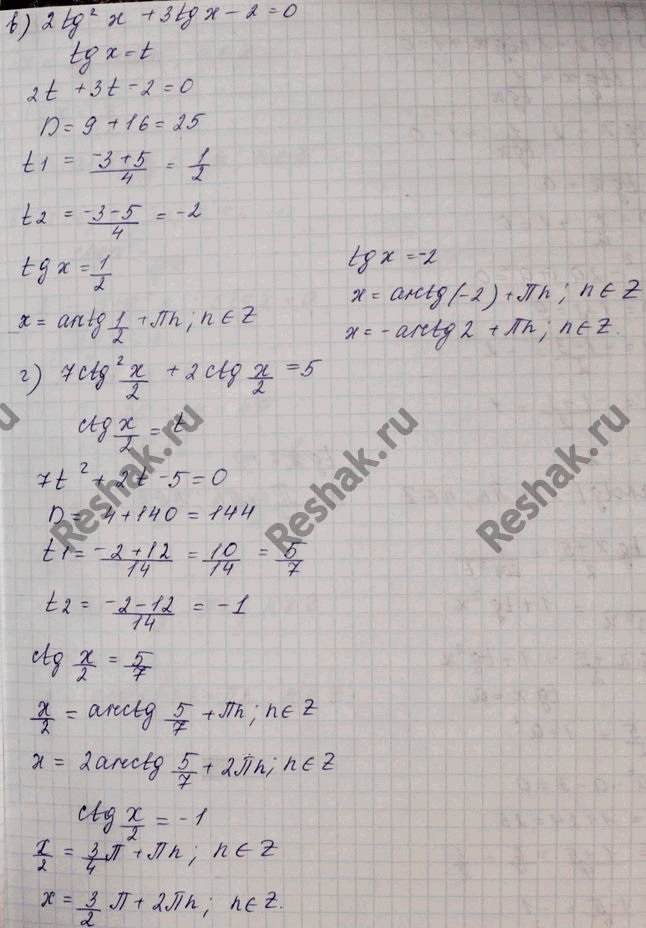 в) 2tg² x + 3tg x - 2 = 0
tg x = t
2t + 3t - 2 = 0
D = 9 + 16 = 25
t1 = (-3+5)/4 = 1/2
t2 = (-3-5)/4 = -2
tg x = 1/2
x = arctg 1/2 + πn; n ∈ Z
tg x = -2
x = arctg(-2) + πn; n ∈ Z
x = -arctg 2 + πn; n ∈ Z.
г) 7ctg² x/2 + 2ctg x/2 = 5
ctg x/2 = t
7t² + 2t - 5 = 0
D = 4 + 140 = 144
t1 = (-2+12)/14 = 10/14 = 5/7
t2 = (-2-12)/14 = -1
ctg x/2 = 5/7
x/2 = arcctg 5/7 + πn; n ∈ Z
x = 2arcctg 5/7 + 2πn; n ∈ Z
ctg x/2 = -1
x/2 = 3/4 π + πn; n ∈ Z
x = 3/2 π + 2πn; n ∈ Z.
Reshak.ru
Reshak.ru
Reshak.ru